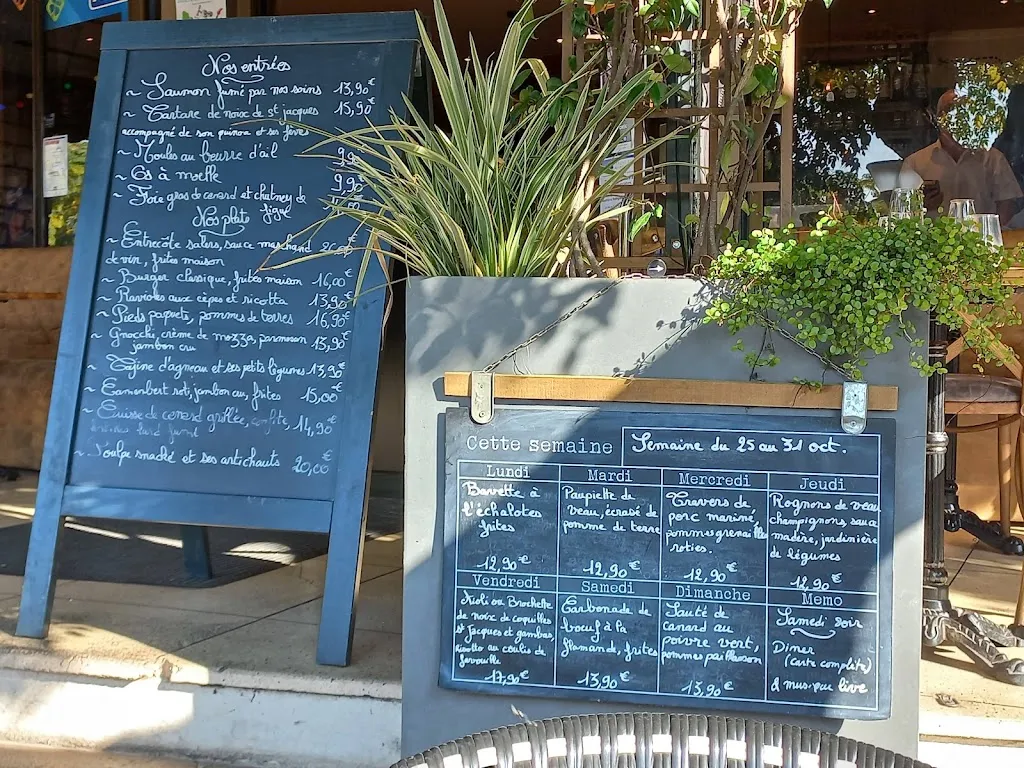 Nos entrées
~ Saumon fumé par nos soins 13,90€
~ Tartare de noix de st jacques 15,90€
accompagné de son quinoa et ses fèves
~ Moules au beurre d'ail 9,90
~ Os à moelle 9,90€
~ Foie gras de canard et chutney de
figue
Nos plats
~ Entrecôte salers, sauce marchand
de vin, frites maison
~ Burger classique, frites maison 16,00€
~ Ravioles aux cèpes et ricotta 13,90€
~ Pieds paquets, pommes de terres 16,90€
~ Gnocchi, crème de mozza, parmesan 13,90€
jambon cru
~ Tajine d'agneau et ses petits légumes 13,90€
~ Camembert roti, jambon cru, frites 15,00€
~ Cuisse de canard grillée, confite, 14,90€
~ Poulpe snacké et ses artichauts 20,00€
Cette semaine
Semaine du 25 au 31 oct.
Lundi
Bavette à
l'échalotes
frites
12,90€
Mardi
Paupiette de
veau, écrasé de
pomme de terre
12,90€
Mercredi
Travers de
porc mariné,
pommes grenailles
roties.
12,90€
Jeudi
Rognons de veau
champignons, sauce
madère, jardinière
de légumes
12,90€
Vendredi
Aïoli ou Brochette
de noix de coquilles
st jacques et gambas,
risotto au coulis de
17,90€
Samedi
Carbonade de
boeuf à la
flamande, frites
13,90€
Dimanche
Sauté de
canard au
poivre vert,
pommes paillasson
13,90€
Memo
Samedi soir
Diner
(carte complète)
& musique live